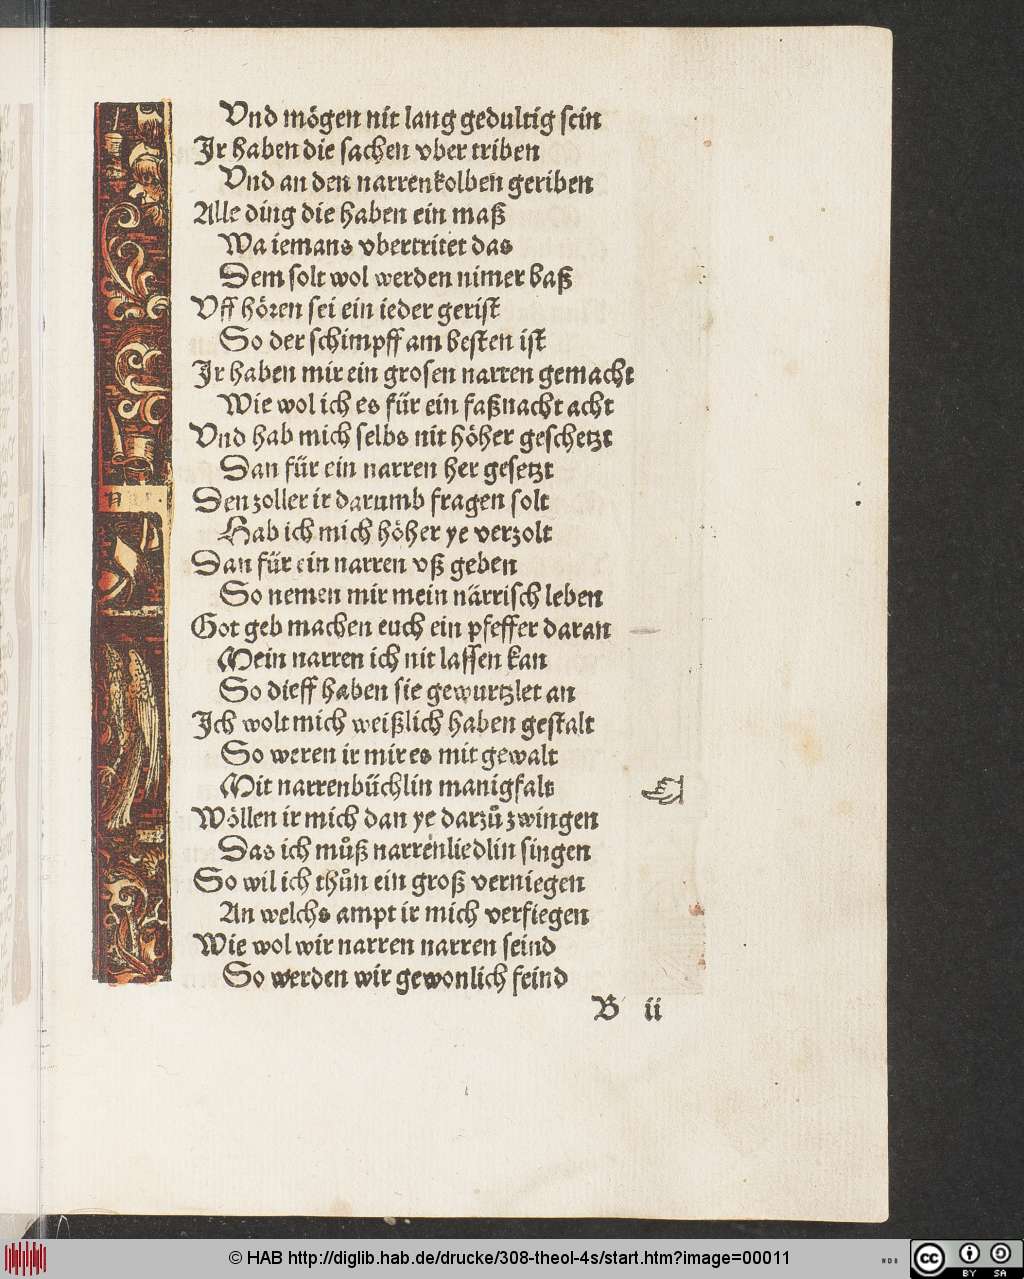 Vnd mögen nit lang gedultig sein
Jr haben die sachen vber triben
Vnd an den narrenkolben geriben
Alle ding die haben ein maß
Wa iemans vbertritet das
Dem solt wol werden nimer baß
Vff hören sei ein ieder gerist
So der schimpff am besten ist
Jr haben mir ein grosen narren gemacht
Wie wol ich es für ein faßnacht acht
Vnd hab mich selbs nit höher geschetzt
Dan für ein narren her gesetzt
Den zoller ir darumb fragen solt
Hab ich mich höher ye verzolt
Dan für ein narren vß geben
So nemen mir mein närrisch leben
Got geb machen euch ein pfeffer daran
Mein narren ich nit lassen kan
So dieff haben sie gewurtzlet an
Jch wolt mich weißlich haben gestalt
So weren ir mir es mit gewalt
Mit narrenbüchlin manigfalt
Wöllen ir mich dan ye darzů zwingen
Das ich můß narrenliedlin singen
So wil ich thůn ein groß verniegen
An welchs ampt ir mich verfiegen
Wie wol wir narren narren seind
So werden wir gewonlich feind
B ii
© HAB http://diglib.hab.de/drucke/308-theol-4s/start.htm?image=00011
WDB
cc BY SA